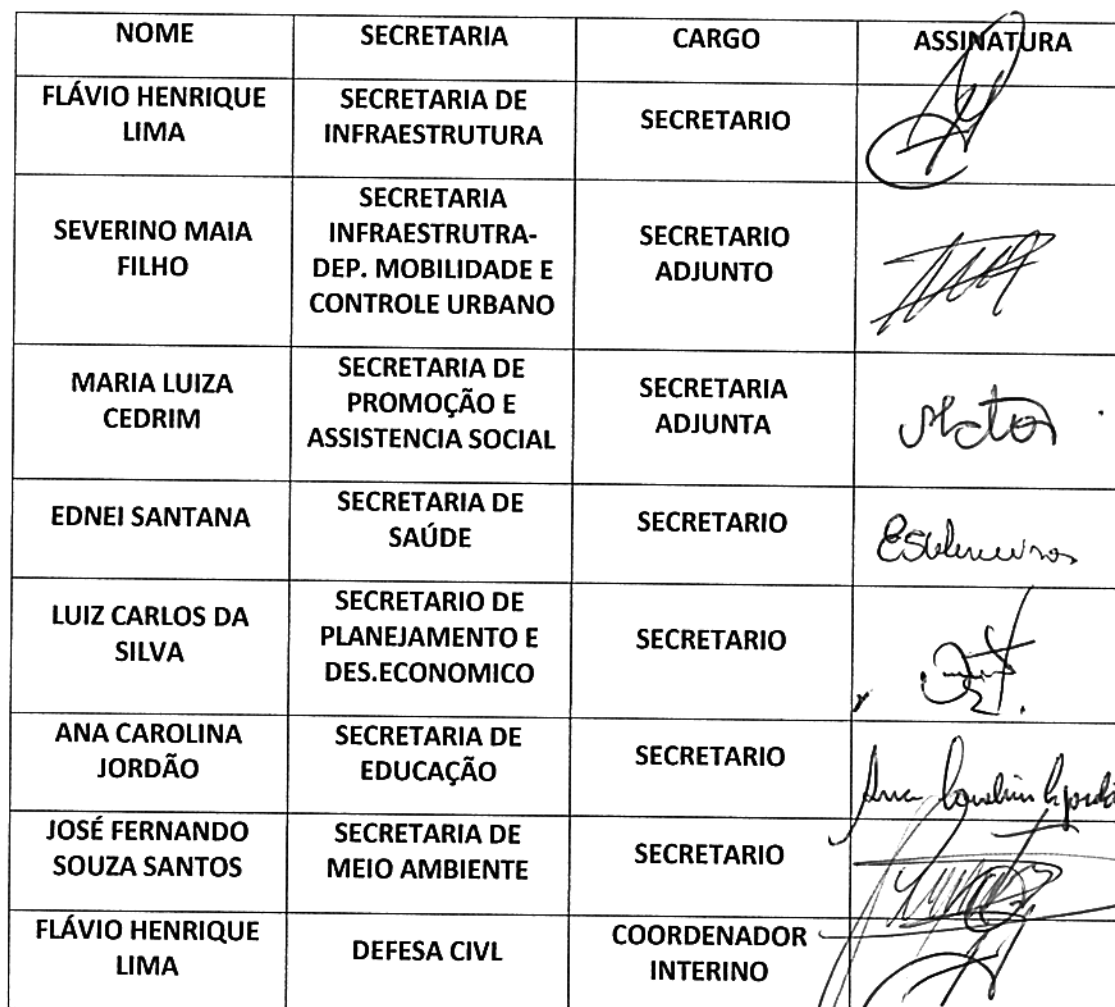 NOME SECRETARIA CARGO ASSINATURA
FLÁVIO HENRIQUE
LIMA
SECRETARIA DE
INFRAESTRUTURA
SECRETARIO
SEVERINO MAIA
FILHO
SECRETARIA
INFRAESTRUTRA-
DEP. MOBILIDADE E
CONTROLE URBANO
SECRETARIO
ADJUNTO
MARIA LUIZA
CEDRIM
SECRETARIA DE
PROMOÇÃO E
ASSISTENCIA SOCIAL
SECRETARIA
ADJUNTA
EDNEI SANTANA
SECRETARIA DE
SAÚDE
SECRETARIO
LUIZ CARLOS DA
SILVA
SECRETARIO DE
PLANEJAMENTO E
DES.ECONOMICO
SECRETARIO
ANA CAROLINA
JORDÃO
SECRETARIA DE
EDUCAÇÃO
SECRETARIO
Ana
JOSÉ FERNANDO
SOUZA SANTOS
SECRETARIA DE
MEIO AMBIENTE
SECRETARIO
FLÁVIO HENRIQUE
LIMA
DEFESA CIVL
COORDENADOR
INTERINO